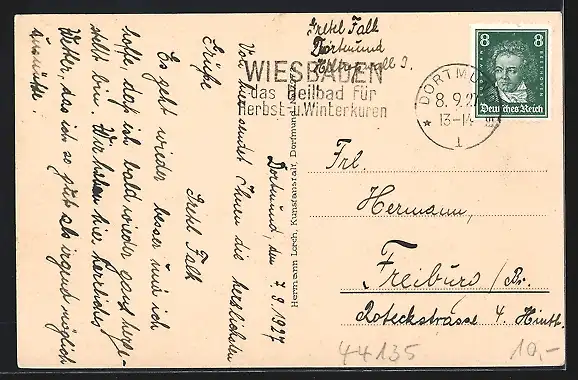 Gretl Falk
Dortmund
WIESBADEN
das Heilbad für
Herbst- u. Winterkuren
DORTMUND
8.9.27
13-14
1
8 8
BEETHOVEN
Deutsches Reich
Dortmund, den 7.9.1927
Von hier sendet Ihnen die herzlichsten
Grüße
Gretl Falk
Es geht wieder besser und ich
hoffe, daß ich bald wieder ganz herge-
stellt bin. Wir haben hier herrliches
Wetter, das ich so gut als irgend möglich
ausnütze.
Hermann Lorch, Kunstanstalt, Dortmund
Frl.
Hermann,
Freiburg/Br.
Roteckstrasse 4. Hinth.
44135
10,-